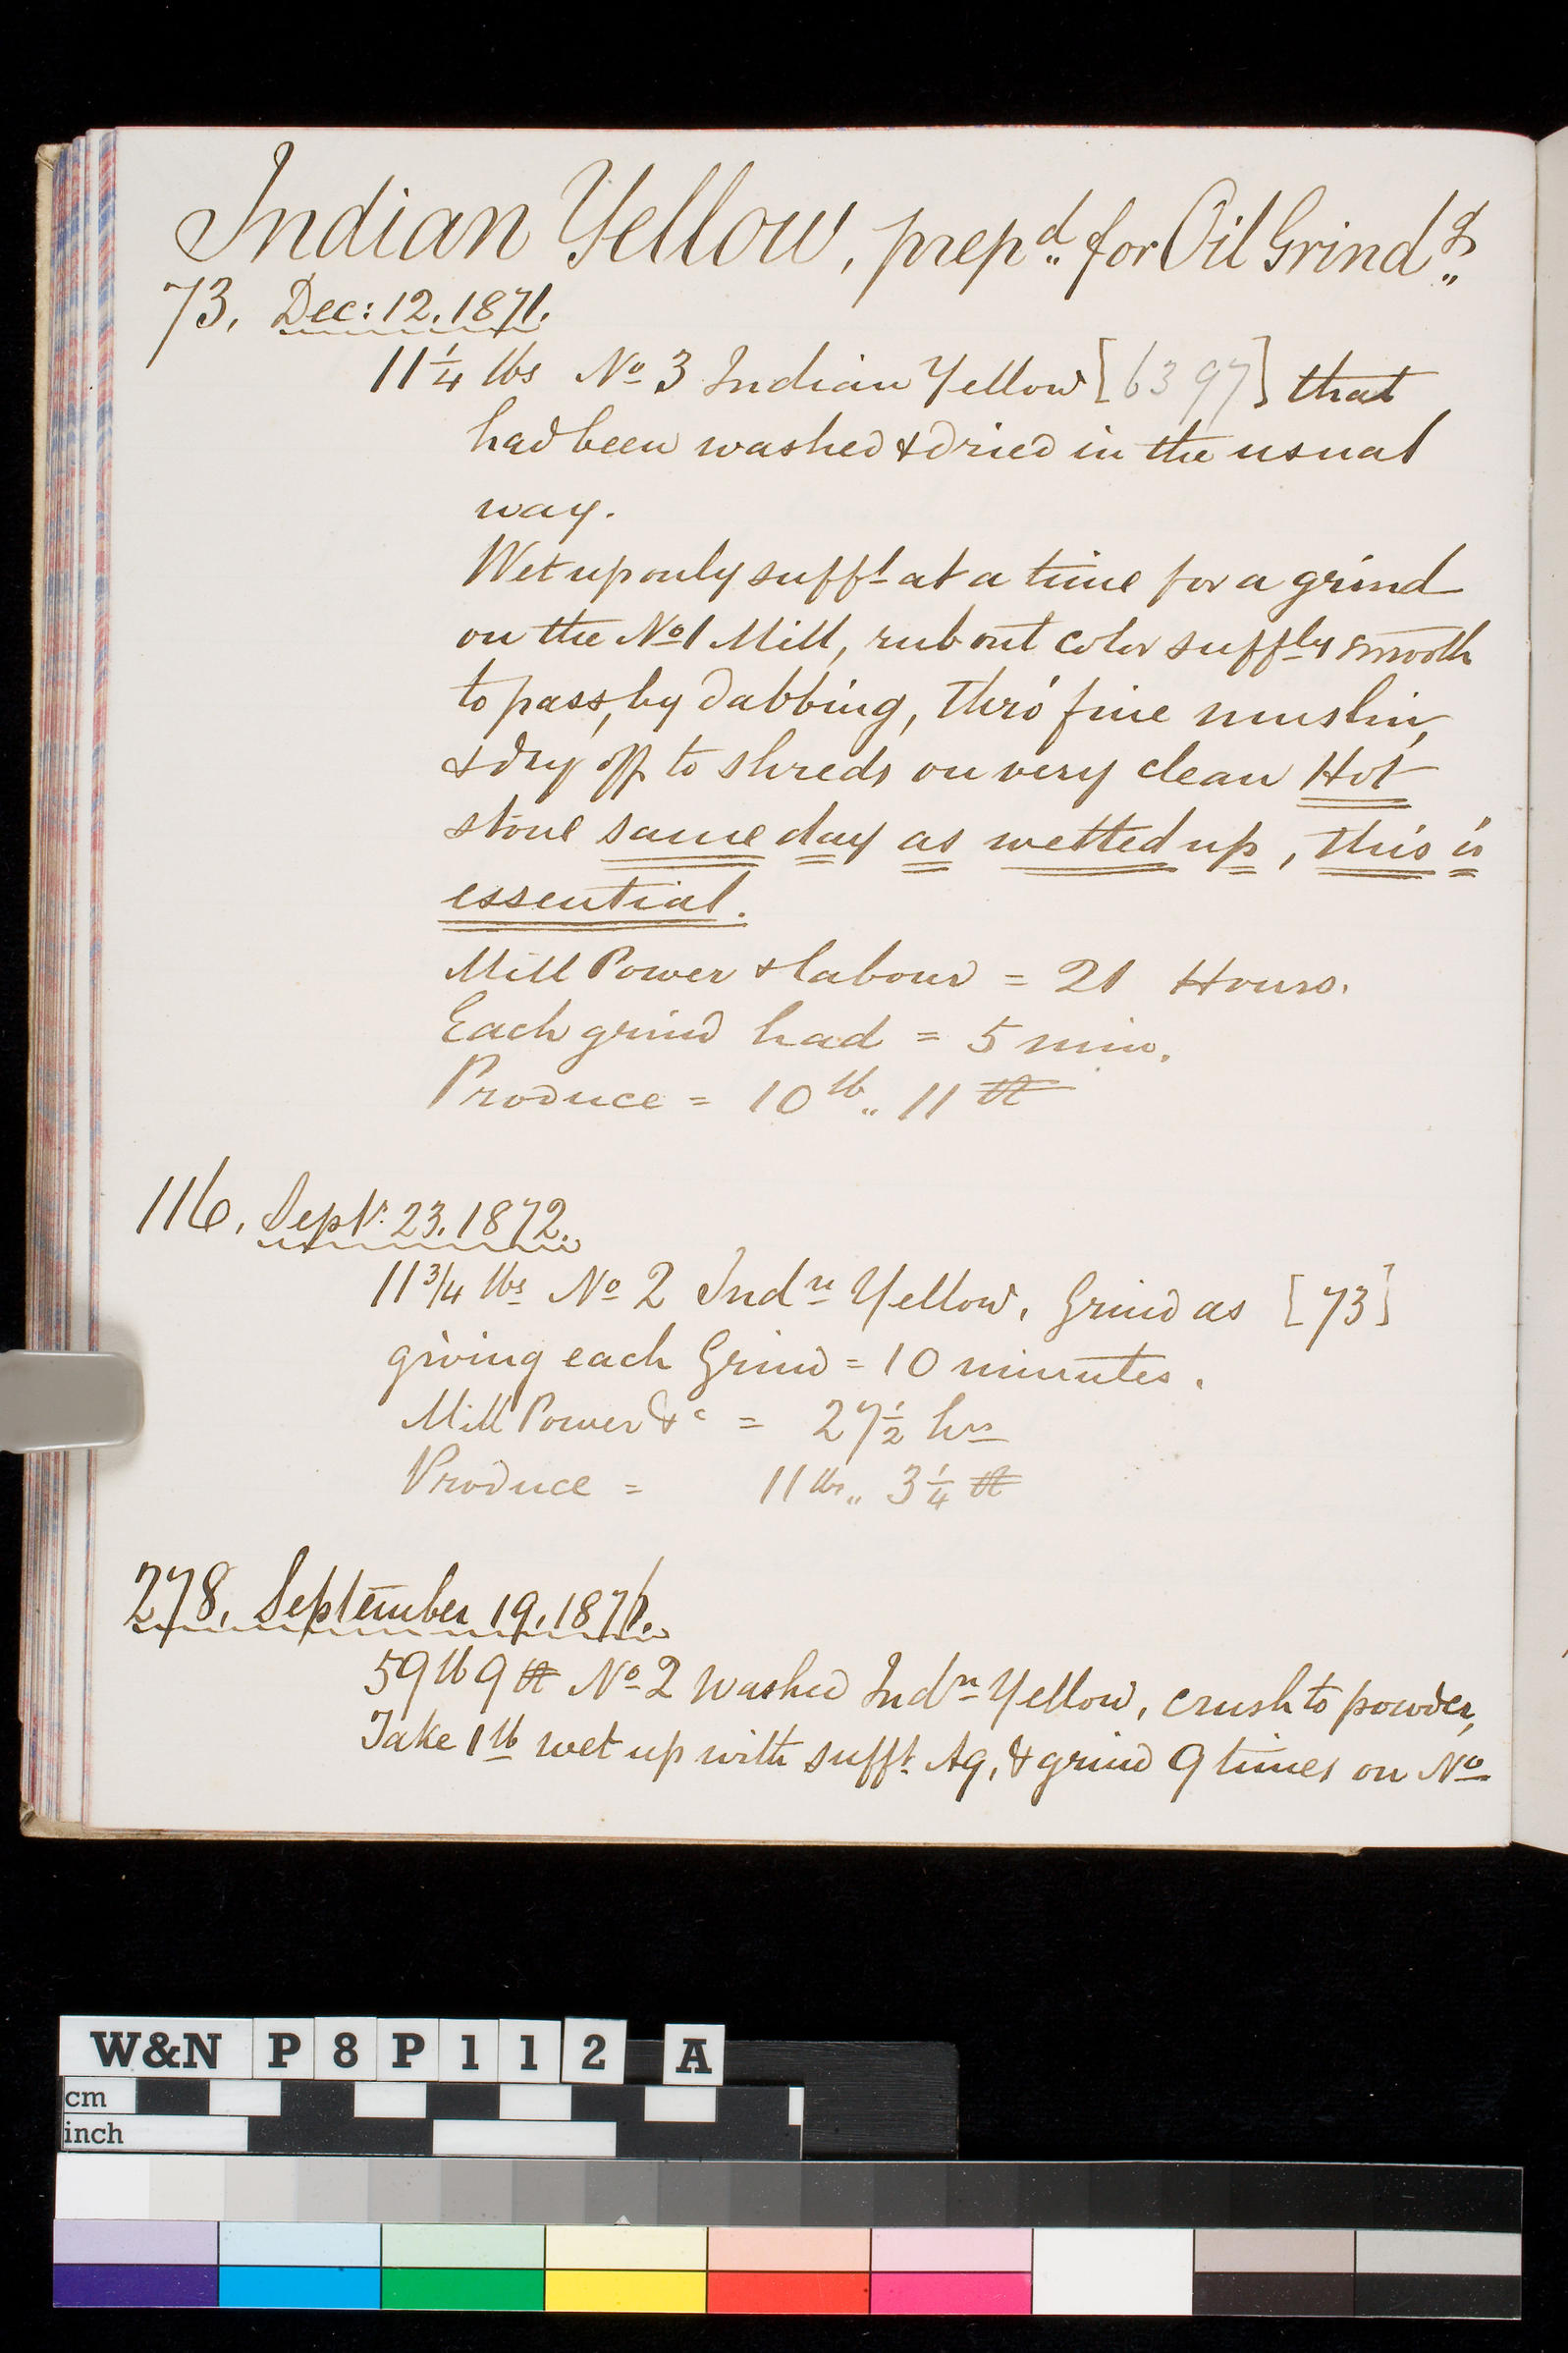 Indian Yellow, prepd. for Oil Grindg.
73. Dec: 12. 1871.
11 1/4 lbs No 3 Indian Yellow [6397] that
had been washed & dried in the usual
way.
Wet up only sufft at a time for a grind
on the No 1 Mill, rub out color suffly smooth
to pass, by dabbing, thro' fine muslin,
& dry off to shreds on very clean Hot
stone same day as wetted up, this is
essential.
Mill Power & labour = 21 Hours.
Each grind had = 5 min.
Produce = 10 lb 11
116. Septr. 23. 1872.
11 3/4 lbs No 2 Indn Yellow, Grind as [73]
giving each Grind = 10 minutes.
Mill Power &c = 27 1/2 hrs
Produce = 11 lbs 3 1/4
278. September 19. 187
59 lb 9 No 2 Washed Indn Yellow, crush to powder,
Take 1 lb wet up with sufft. Aq, & grind 9 times on No
W&N P8P112 A
cm
inch